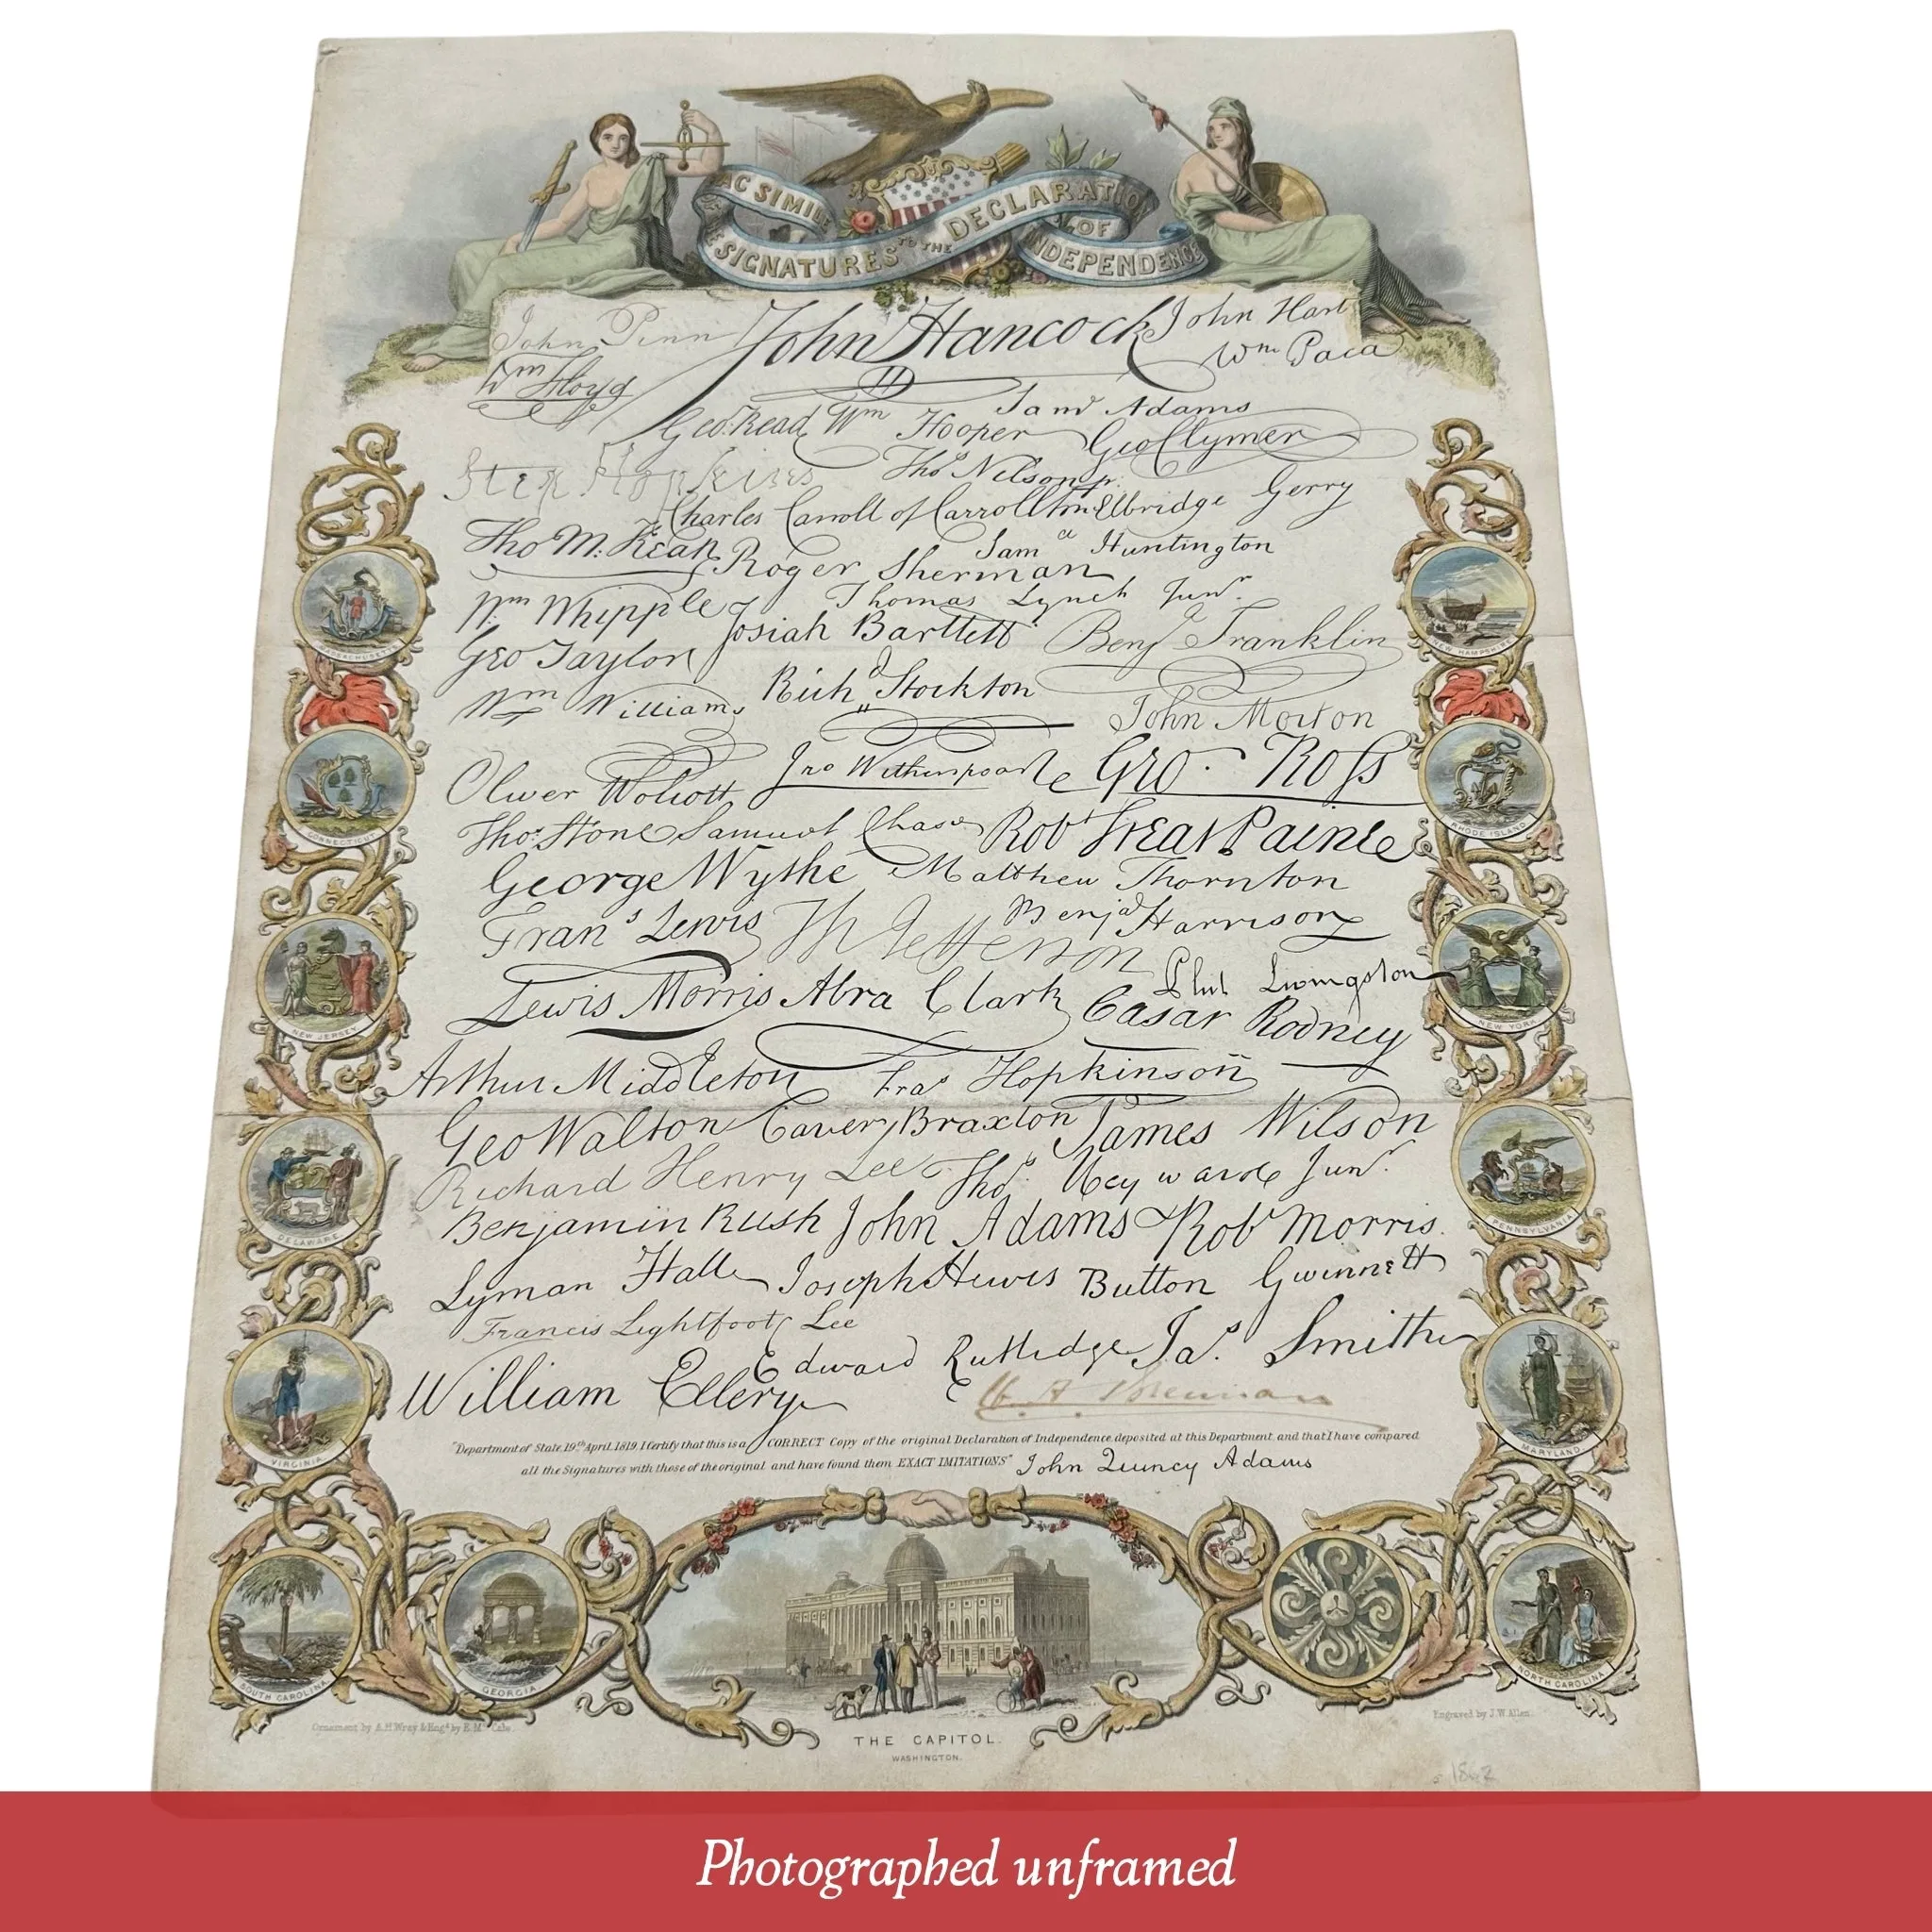 FAC SIMILE
OF THE SIGNATURES TO THE DECLARATION OF INDEPENDENCE
John Penn John Hancock John Hart
Wm Floyd Wm Paca
Saml Adams
Geo. Read Wm Hooper Geo Clymer
Step Hopkins Thos Nelson jr.
Charles Carroll of Carrollton Elbridge Gerry
Tho M: Kean Saml Huntington
Roger Sherman
Wm Whipple Thomas Lynch Junr.
Josiah Bartlett Benj Franklin
Geo Taylor
Richd Stockton
Wm Williams John Morton
Jno Witherspoon Geo. Ross
Oliver Wolcott
Thos. Stone Samuel Chase Robt Treat Paine
George Wythe Matthew Thornton
Frans Lewis Th Jefferson Benja Harrison
Phil Livingston
Lewis Morris Abra Clark Casar Rodney
Arthur Middleton Fras Hopkinson
Geo Walton Carter Braxton James Wilson
Richard Henry Lee Thos. Heyward Junr.
Benjamin Rush John Adams Robt Morris.
Lyman Hall Joseph Hewes Button Gwinnett
Francis Lightfoot Lee
Edward Rutledge Jas. Smith
William Ellery
"Department of State, 19th April, 1819. I Certify that this is a CORRECT Copy of the original Declaration of Independence, deposited at this Department, and that I have compared
all the Signatures with those of the original and have found them EXACT IMITATIONS" John Quincy Adams
MASSACHUSETTS
NEW HAMPSHIRE
CONNECTICUT
RHODE ISLAND
NEW JERSEY
NEW YORK
DELAWARE
PENNSYLVANIA
VIRGINIA
MARYLAND
SOUTH CAROLINA
GEORGIA
NORTH CAROLINA
Ornament by A. H. Wray & Engd by E. Mc Cabe.
Engraved by J. W. Allen.
THE CAPITOL.
WASHINGTON.
Photographed unframed